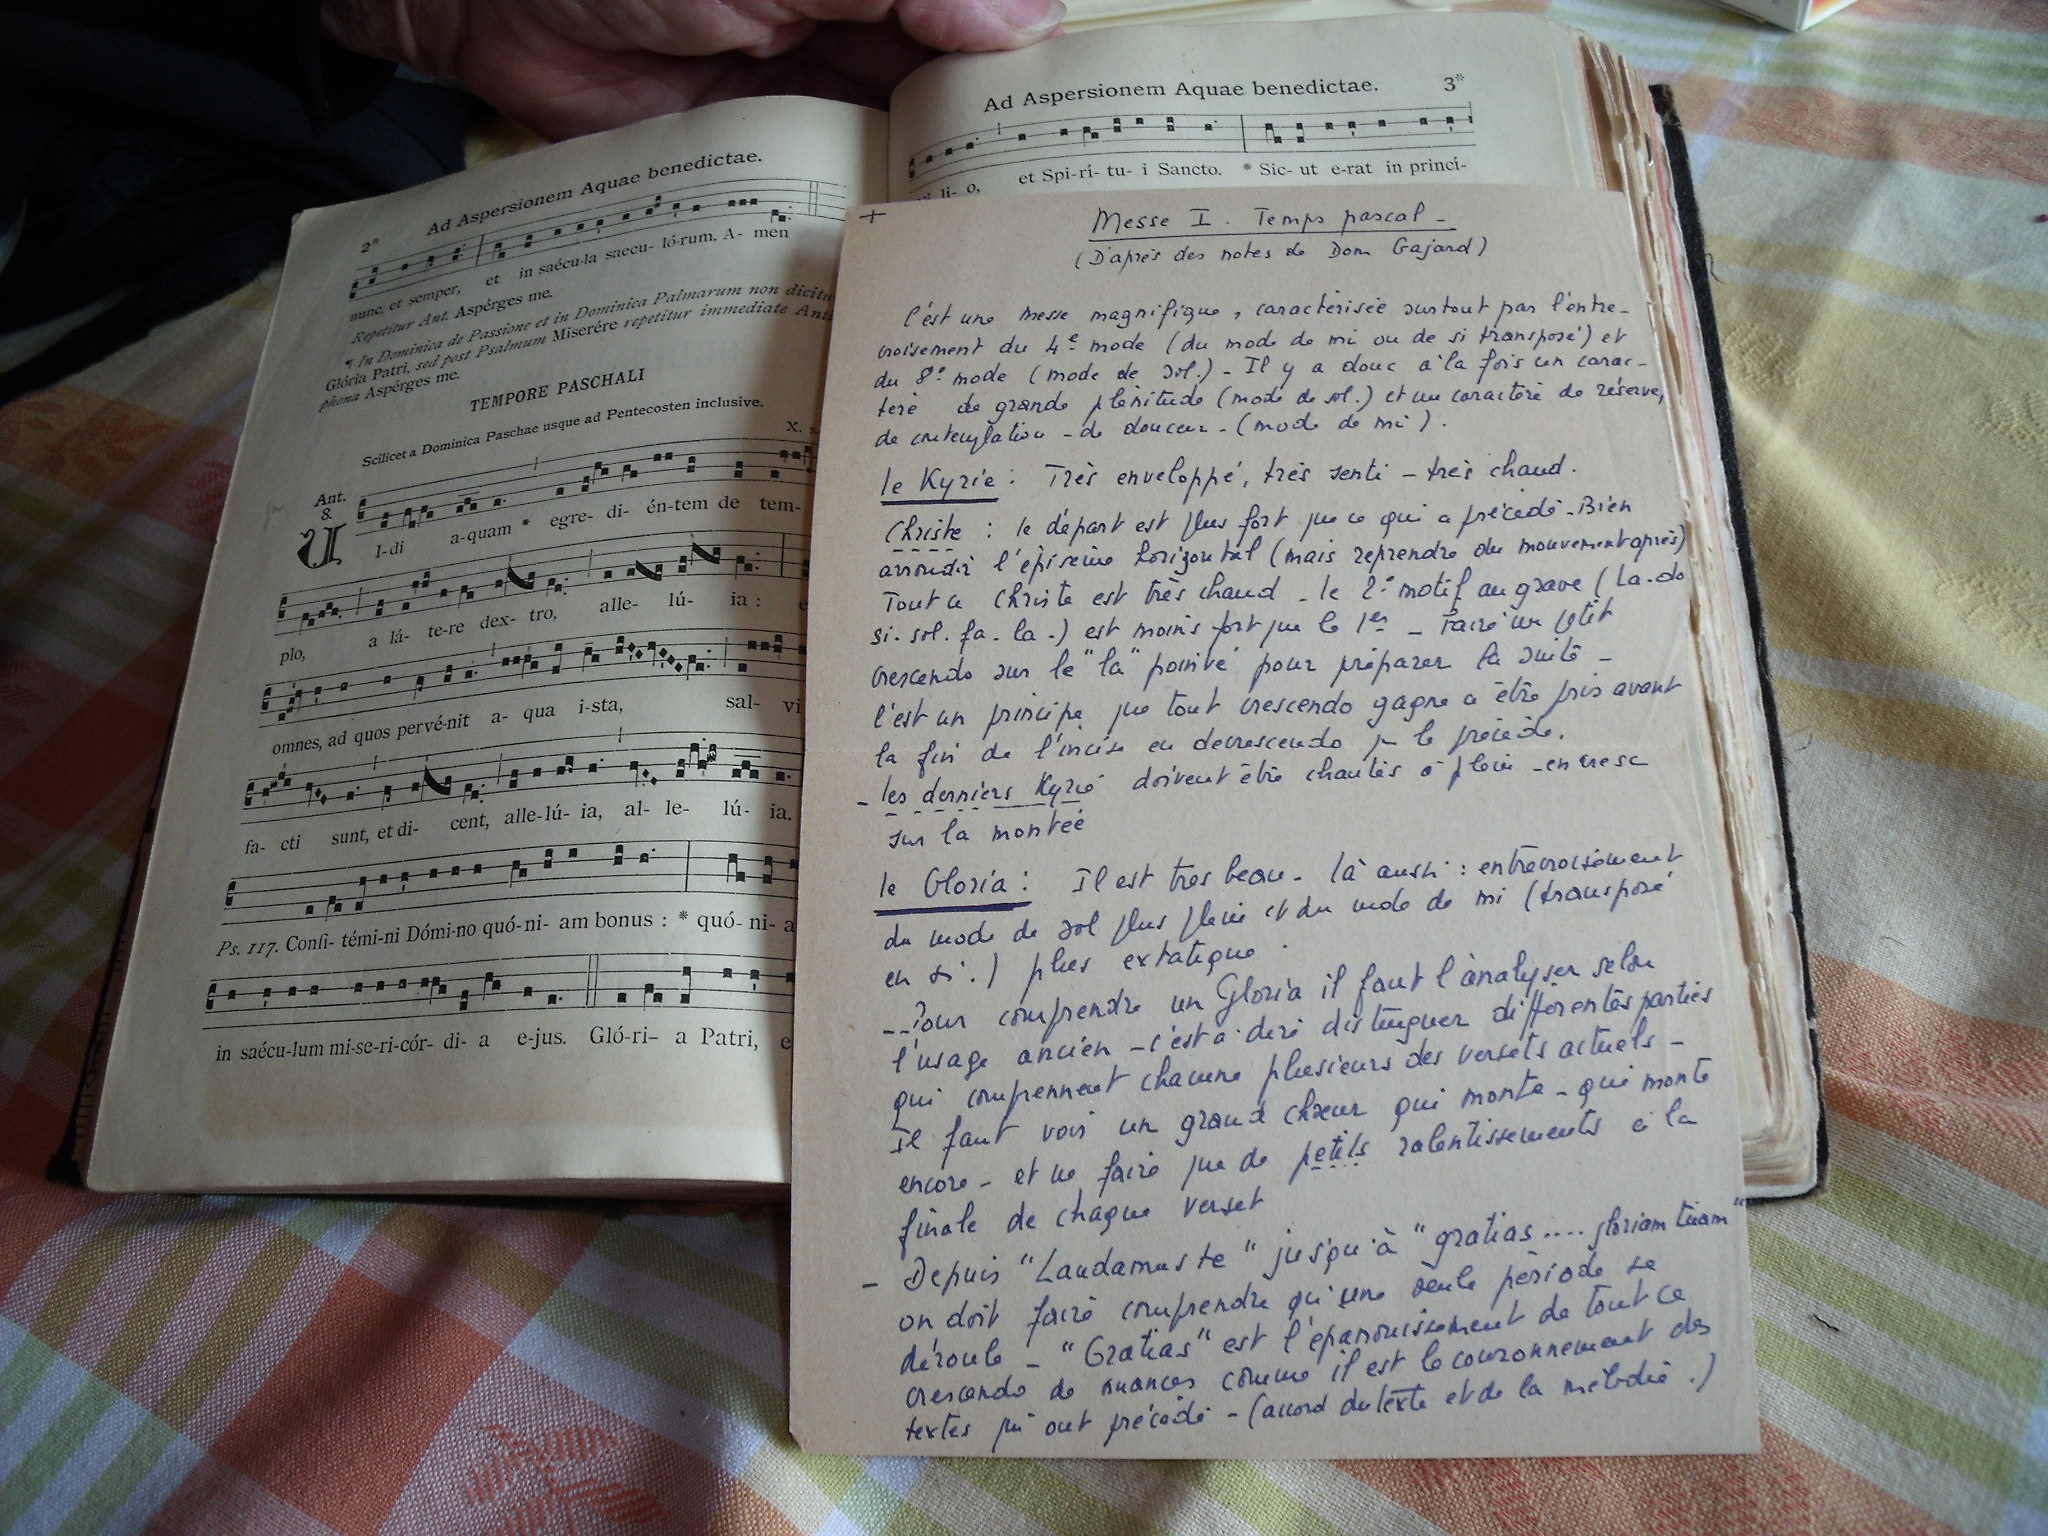 Ad Aspersionem Aquae benedictae.
2*
nunc, et semper, et in saécu-la saecu- ló-rum. A- men
Repetitur Ant. Aspérges me.
¶ In Dominica de Passione et in Dominica Palmarum non dicitu
Glória Patri, sed post Psalmum Miserére repetitur immediate Anti
phona Aspérges me.
TEMPORE PASCHALI
Scilicet a Dominica Paschae usque ad Pentecosten inclusive.
X. s.
Ant.
8.
VI-di a-quam * egre- di- én-tem de tem-
plo, a lá- te-re dex- tro, alle- lú- ia : e
omnes, ad quos pervé-nit a- qua i-sta, sal- vi
fa- cti sunt, et di- cent, alle-lú- ia, al- le- lú- ia.
Ps. 117. Confi- témi-ni Dómi-no quó-ni- am bonus : * quó-ni- a
in saécu-lum mi-se-ri-cór- di- a e-jus. Gló-ri- a Patri, e
Ad Aspersionem Aquae benedictae.
3*
li- o, et Spi-rí- tu- i Sancto. * Sic- ut e-rat in princí-
+
Messe I. Temps pascal -
(D'après des notes de Dom Gajard)
C'est une messe magnifique, caractérisée surtout par l'entre-
croisement du 4e mode (du mode de mi ou de si transposé) et
du 8e mode (mode de sol.) - Il y a donc à la fois un carac-
tère de grande plénitude (mode de sol.) et un caractère de réserve,
de contemplation - de douceur - (mode de mi).
le Kyrie : Très enveloppé, très senti - très chaud.
Christe : le départ est plus fort que ce qui a précédé - Bien
arrondir l'épisème horizontal (mais reprendre du mouvement après)
Tout ce Christe est très chaud - le 2e motif au grave (la-do
si. sol. fa. la.) est moins fort que le 1er - Faire un petit
crescendo sur le "la" pointé pour préparer la suite -
C'est un principe que tout crescendo gagne à être pris avant
la fin de l'incise en decrescendo qui le précède.
- les derniers Kyrie doivent être chantés à plein - en cresc
sur la montée
le Gloria : Il est très beau - là aussi : entrecroisement
du mode de sol plus plein et du mode de mi (transposé
en si.) plus extatique.
- Pour comprendre un Gloria il faut l'analyser selon
l'usage ancien - c'est à dire distinguer différentes parties
qui comprennent chacune plusieurs des versets actuels -
Il faut voir un grand chœur qui monte - qui monte
encore - et ne faire que de petits ralentissements à la
finale de chaque verset
- Depuis "Laudamus te" jusqu'à "gratias .... gloriam tuam"
on doit faire comprendre qu'une seule période se
déroule - "Gratias" est l'épanouissement de tout ce
crescendo de nuances comme il est le couronnement des
textes qui ont précédé - (accord du texte et de la mélodie.)